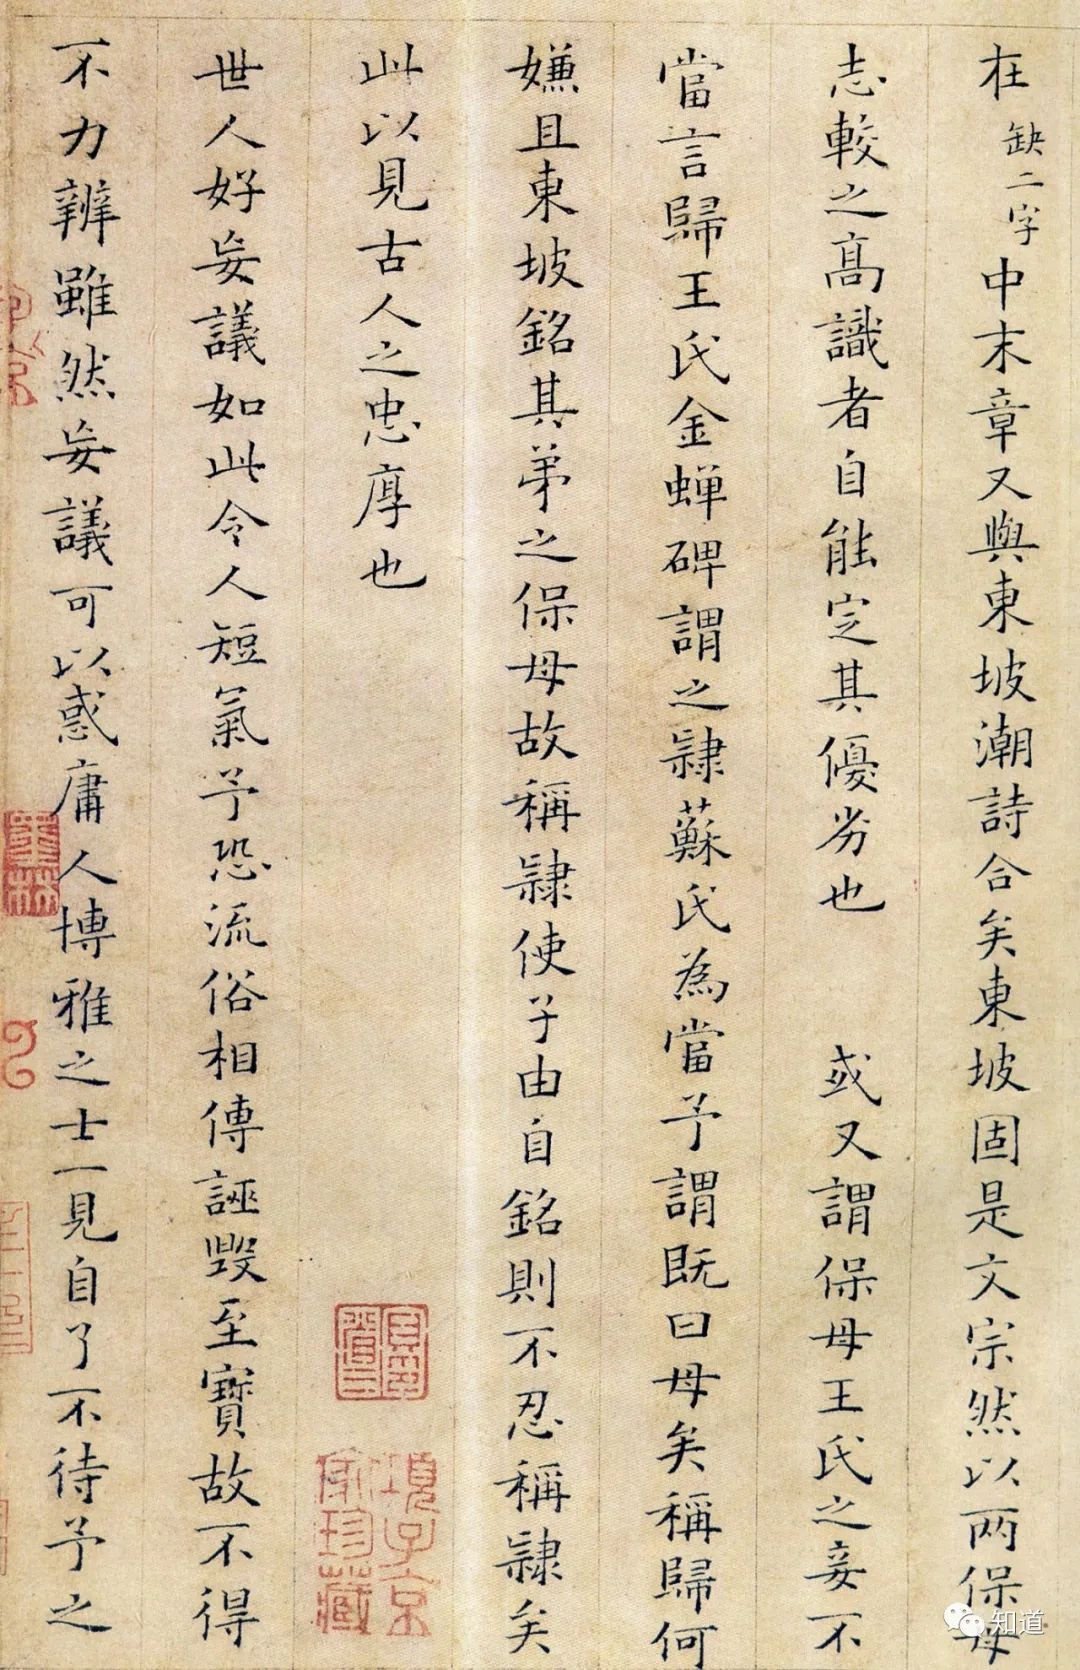 在缺二字中末章又與東坡潮詩合矣東坡固是文宗然以两保母
志較之髙識者自能定其優劣也 或又謂保母王氏之妾不
當言歸王氏金蟬碑謂之隷蘇氏為當予謂既曰母矣稱歸何
嫌且東坡銘其弟之保母故稱隷使子由自銘則不忍稱隷矣
此以見古人之忠厚也
世人好妄議如此令人短氣予恐流俗相傳誣毁至寳故不得
不力辨雖然妄議可以惑庸人博雅之士一見自了不待予之
項子京家珍藏
墨林
知道